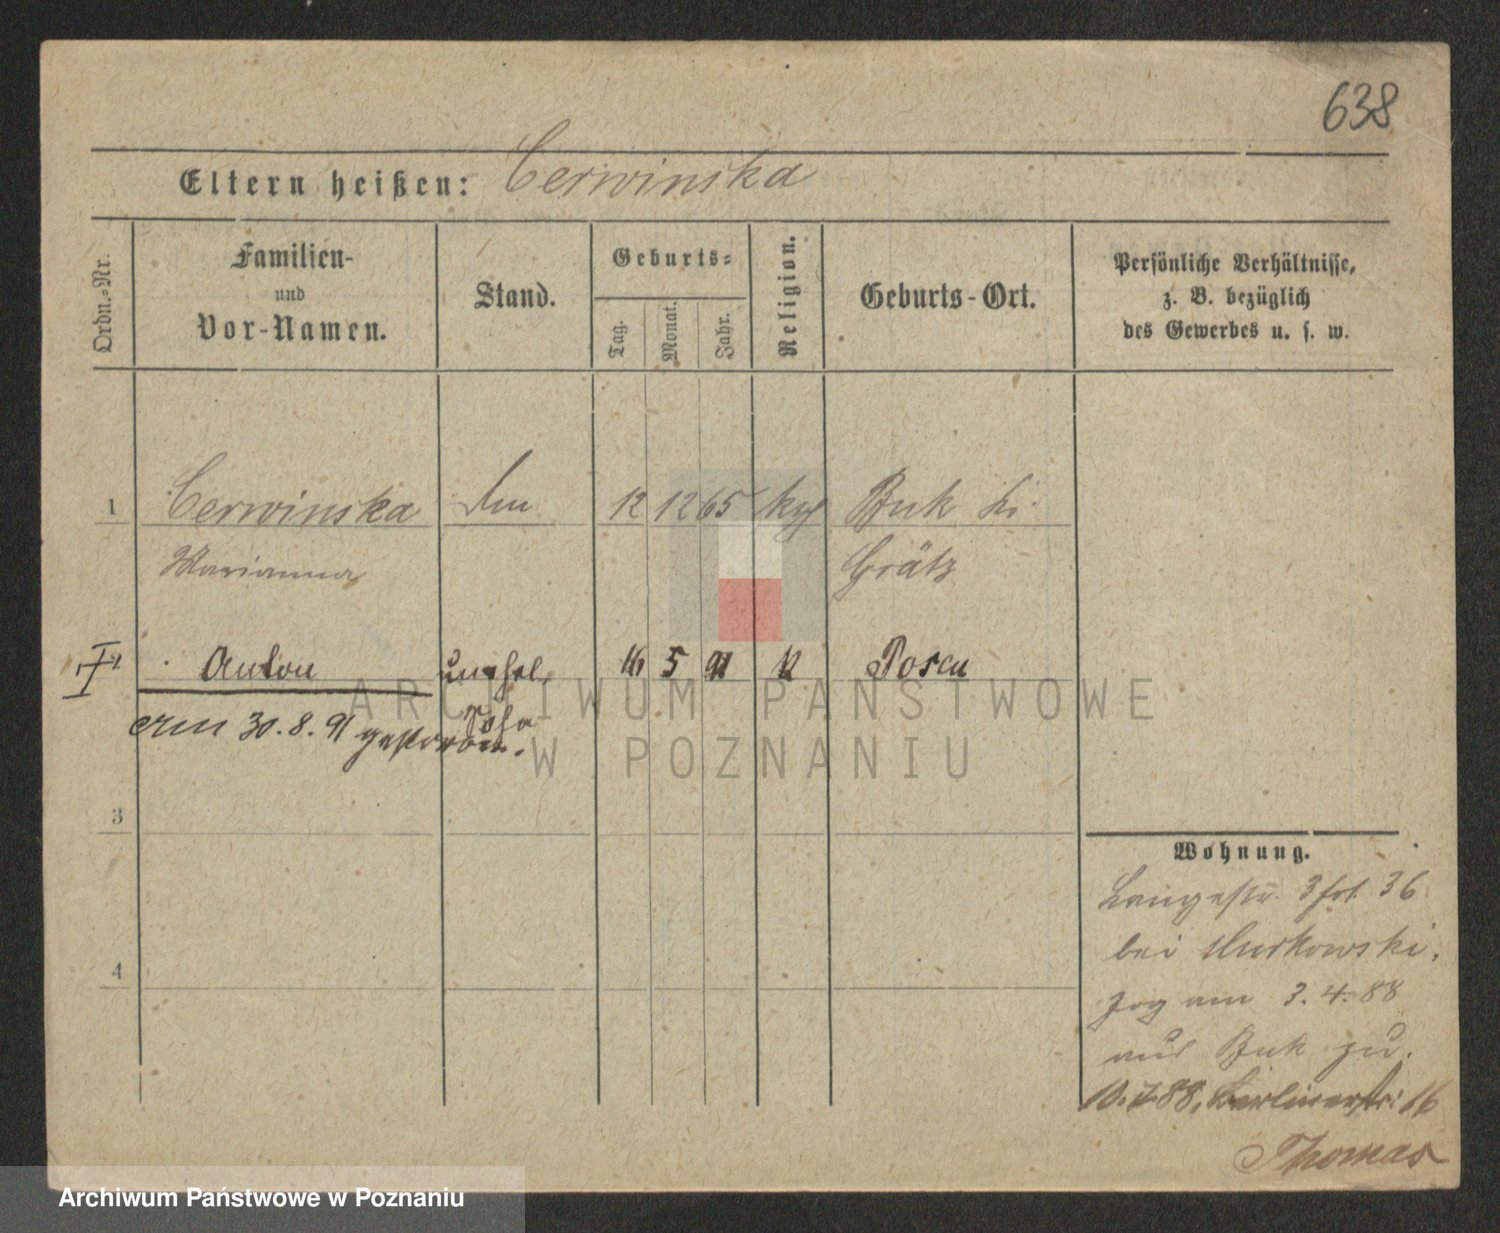 638
Eltern heißen: Cerwinska
Ordn.-Nr.
Familien-
und
Vor-Namen.
Stand.
Geburts-
Tag.
Monat.
Jahr.
Religion.
Geburts-Ort.
Persönliche Verhältnisse,
z. B. bezüglich
des Gewerbes u. s. w.
1 Cerwinska 12 12 65 Buk
Marianna Grätz
2 Anton unehel. 16 5 91 Posen
am 30.8.91 gestorben.
ARCHIWUM PAŃSTWOWE
W POZNANIU
3
Wohnung.
Langestr. 36
bei
4
zog am 3.4.88
aus Buk zu.
88, Berlinerstr. 16
Thomas
Archiwum Państwowe w Poznaniu